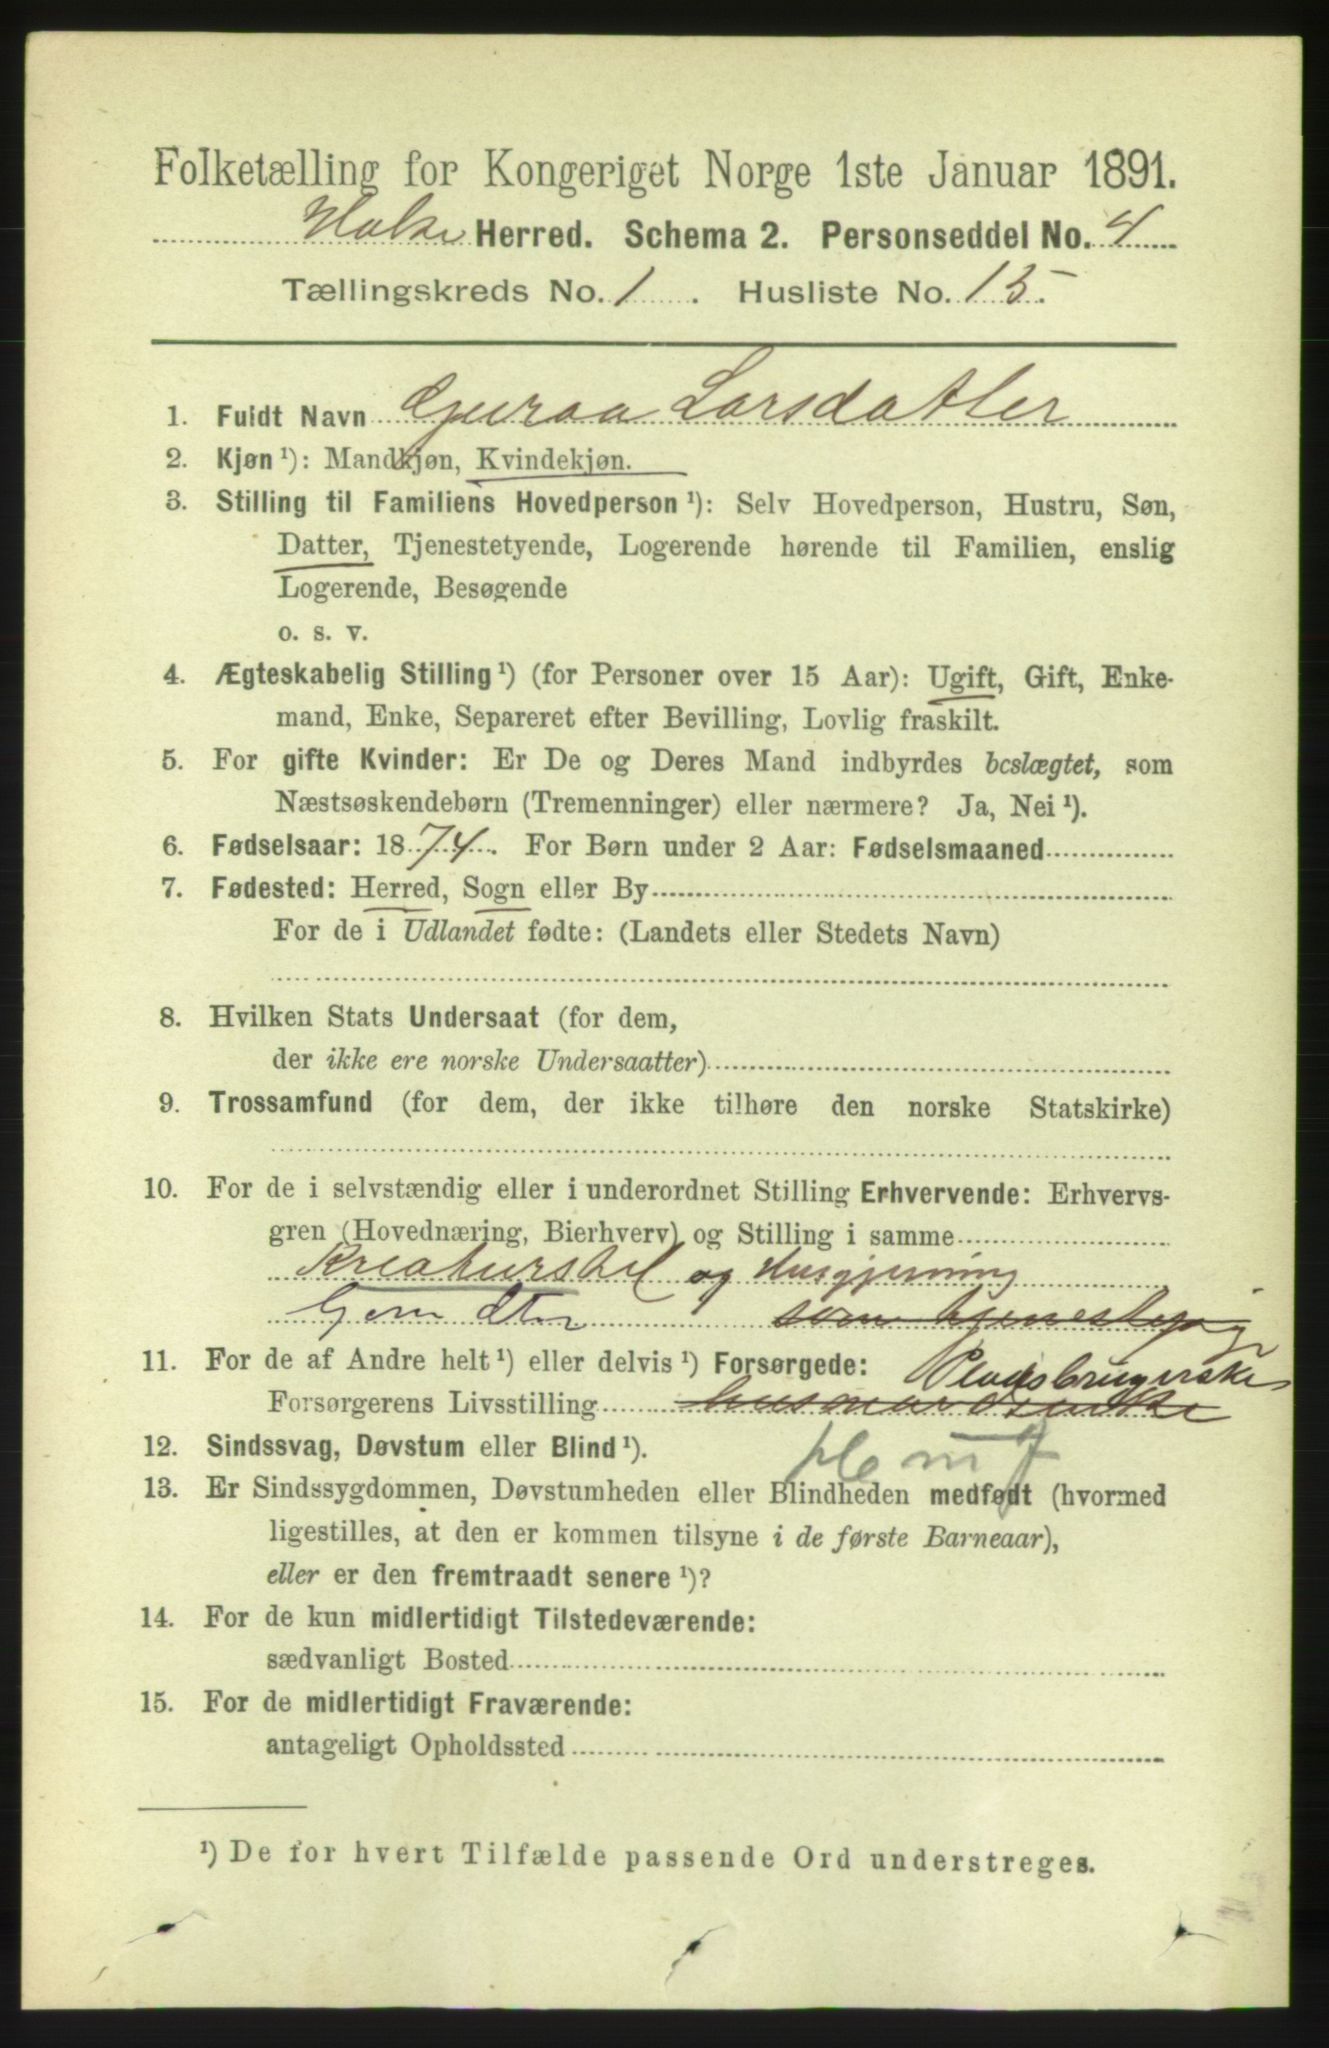 Folketælling for Kongeriget Norge 1ste Januar 1891.
Herred. Schema 2. Personseddel No. 4
Tællingskreds No. 1. Husliste No. 15.
1. Fuldt Navn Guraa Larsdatter
2. Kjøn ¹): Mandkjøn, Kvindekjøn.
3. Stilling til Familiens Hovedperson ¹): Selv Hovedperson, Hustru, Søn,
Datter, Tjenestetyende, Logerende hørende til Familien, enslig
Logerende, Besøgende
o. s. v.
4. Ægteskabelig Stilling ¹) (for Personer over 15 Aar): Ugift, Gift, Enke-
mand, Enke, Separeret efter Bevilling, Lovlig fraskilt.
5. For gifte Kvinder: Er De og Deres Mand indbyrdes beslægtet, som
Næstsøskendebørn (Tremenninger) eller nærmere? Ja, Nei ¹).
6. Fødselsaar: 1874. For Børn under 2 Aar: Fødselsmaaned
7. Fødested: Herred, Sogn eller By
For de i Udlandet fødte: (Landets eller Stedets Navn)
8. Hvilken Stats Undersaat (for dem,
der ikke ere norske Undersaatter)
9. Trossamfund (for dem, der ikke tilhøre den norske Statskirke)
10. For de i selvstændig eller i underordnet Stilling Erhvervende: Erhvervs-
gren (Hovednæring, Bierhverv) og Stilling i samme
Kreaturstel og Husgjerning
som tjenestepige
11. For de af Andre helt ¹) eller delvis ¹) Forsørgede: Pladsbrugerske
Forsørgerens Livsstilling husmandsenke
12. Sindssvag, Døvstum eller Blind ¹).
13. Er Sindssygdommen, Døvstumheden eller Blindheden medfødt (hvormed
ligestilles, at den er kommen tilsyne i de første Barneaar),
eller er den fremtraadt senere ¹)?
14. For de kun midlertidigt Tilstedeværende:
sædvanligt Bosted
15. For de midlertidigt Fraværende:
antageligt Opholdssted
¹) De for hvert Tilfælde passende Ord understreges.